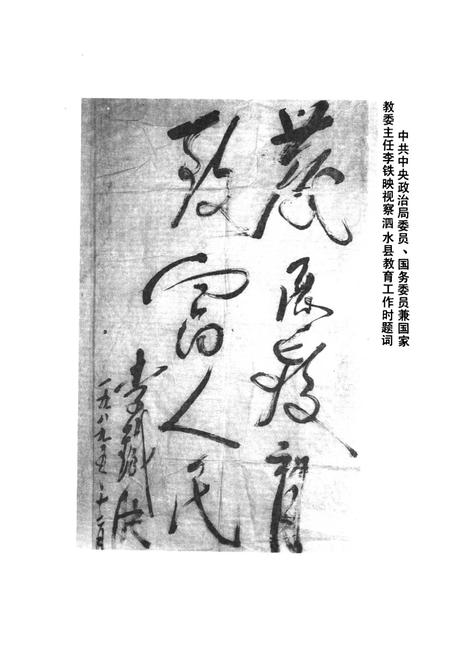 中共中央政治局委员、国务委员兼国家
教委主任李铁映视察泗水县教育工作时题词
發展教育
致富人民
李铁映
一九八九